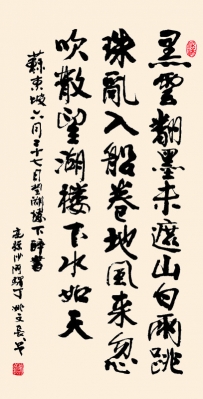 黑雲翻墨未遮山白雨跳
珠亂入船卷地風来忽
吹散望湖楼下水如天
蘇東坡六月二十七日望湖樓下醉書